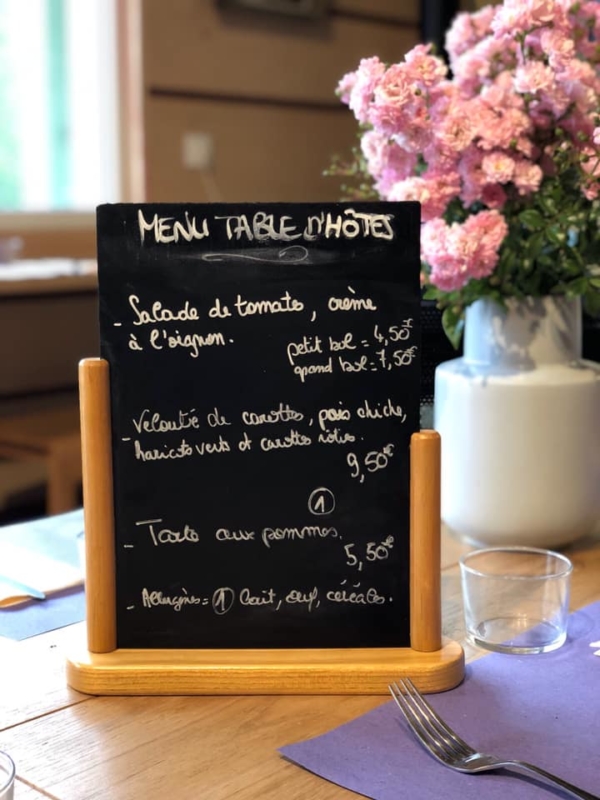 MENU TABLE D'HÔTES
- Salade de tomates, crème
à l'oignon.
petit bol = 4,50€
grand bol = 7,50€
- Velouté de carottes, pois chiche,
haricots verts et carottes rôties.
9,50€
①
- Tarte aux pommes.
5,50€
- Allergènes = ① lait, œuf, céréales.